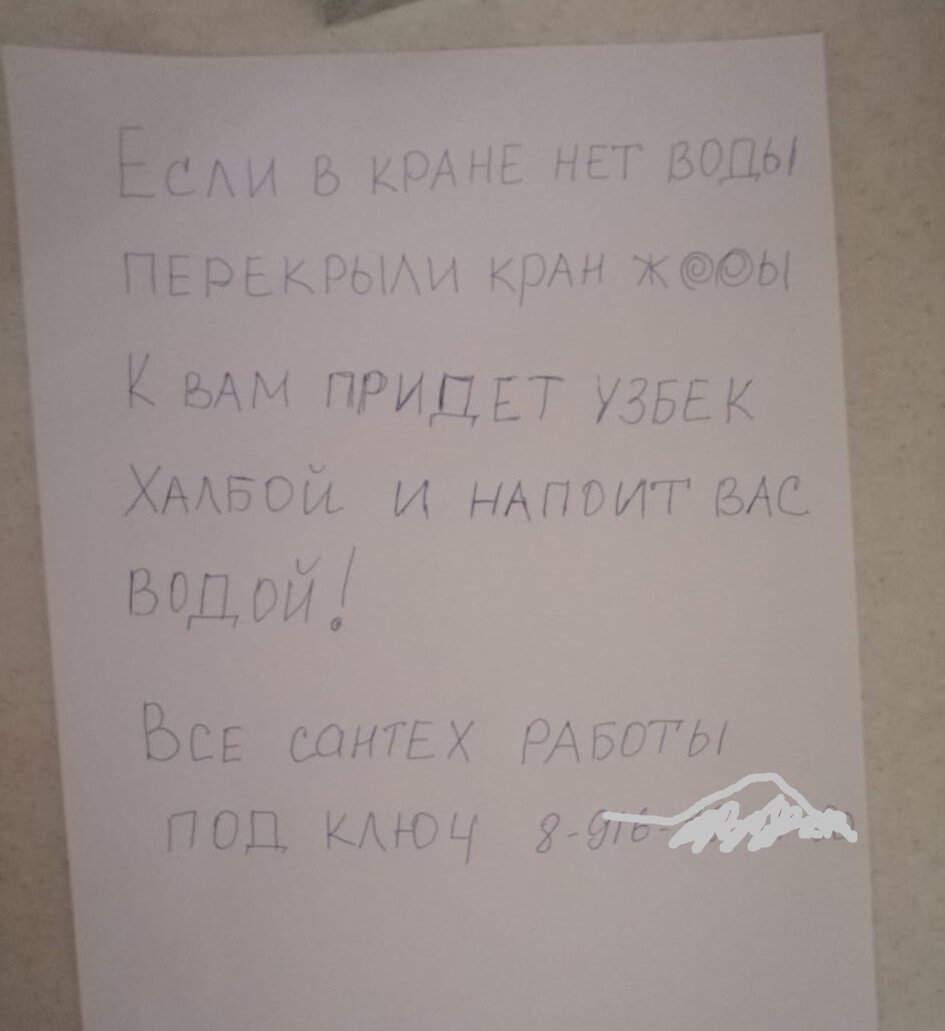 Если в кране нет воды
перекрыли кран ж@@ы
К вам придет узбек
Халбой и напоит вас
водой!
Все сантех работы
под ключ 8-916-